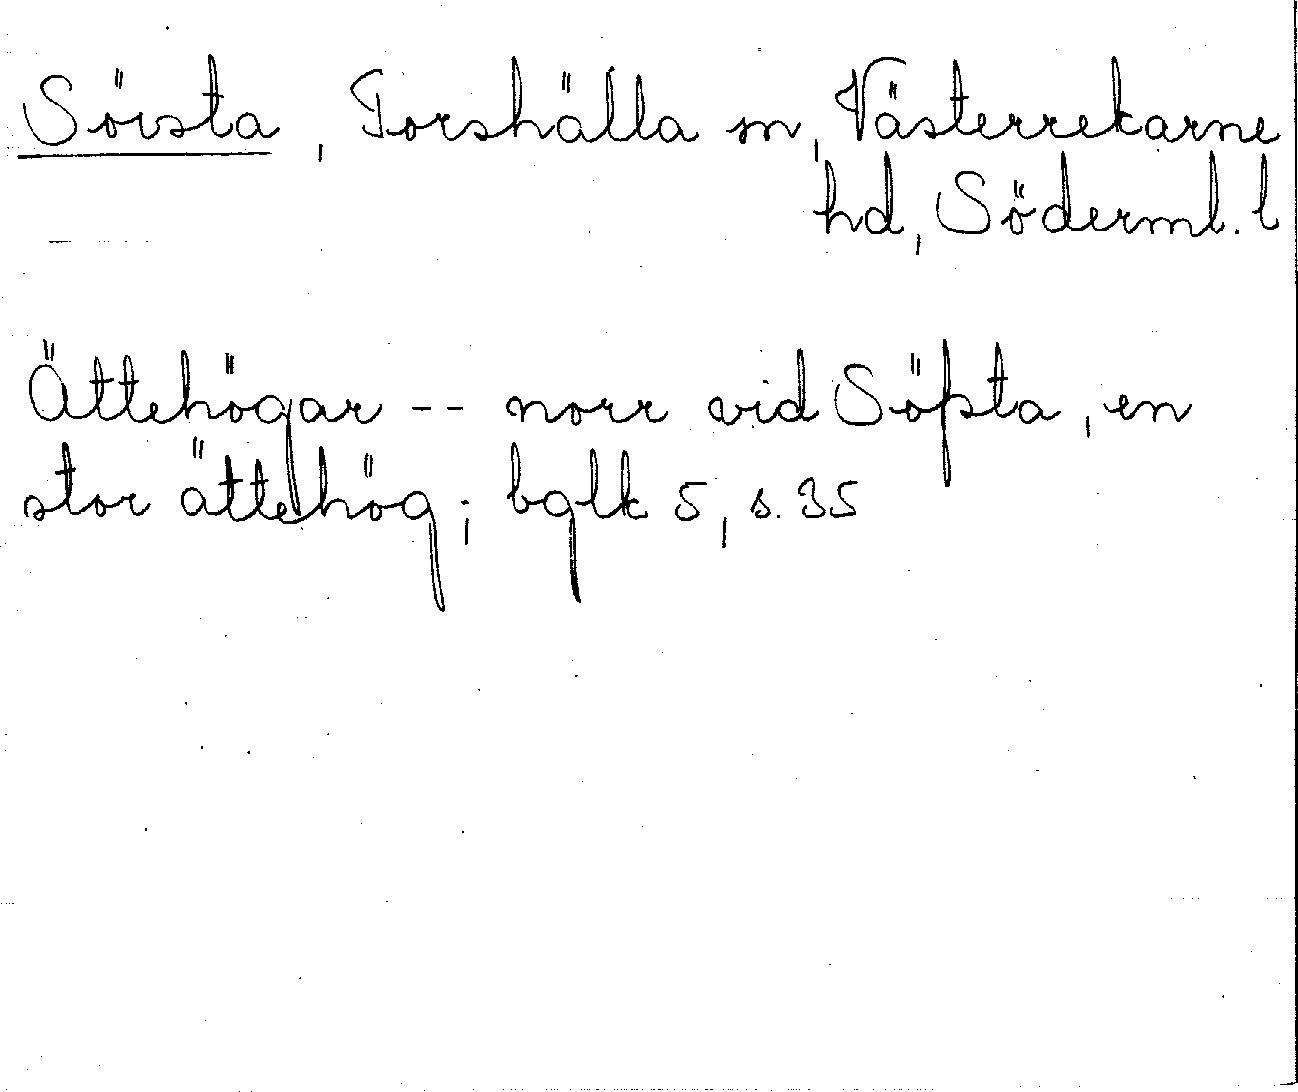 Sörsta, Torshälla sn, Västerrekarne
hd, Söderml. l
Ättehögar -- norr vid Söþsta, en
stor ättehög; bglk 5, s. 35